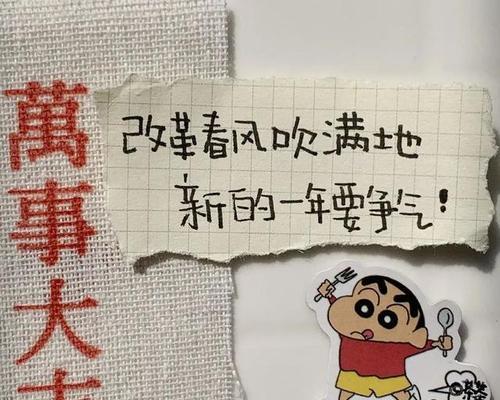 萬事大
改革春风吹满地
新的一年要争气!